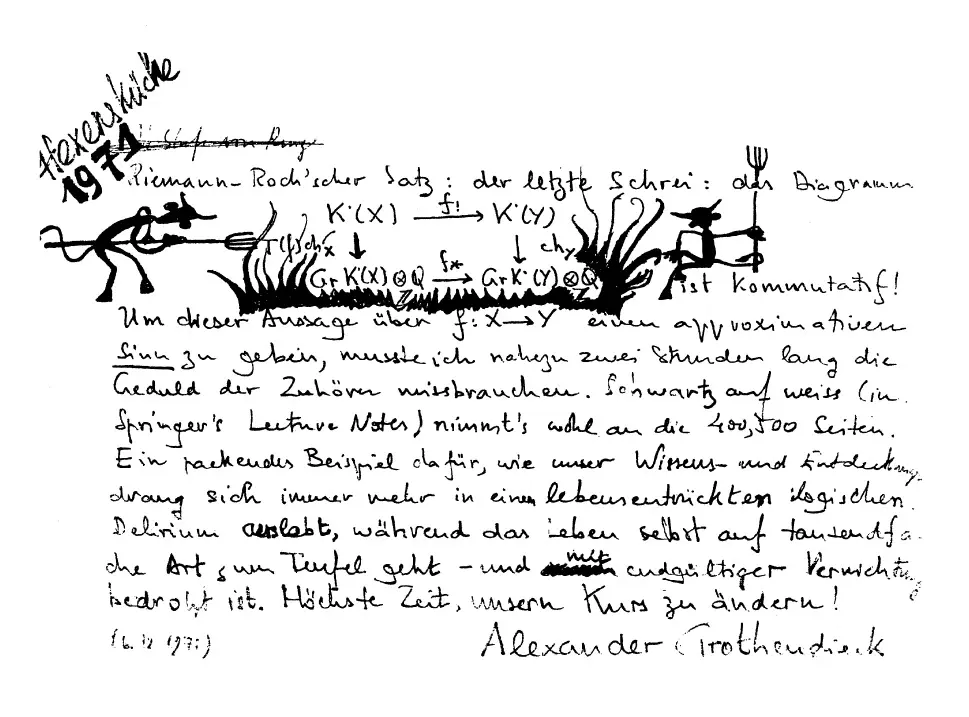 Hexenküche
1971
Riemann-Roch'scher Satz: der letzte Schrei: das Diagramm
K˙(X) —f!→ K˙(Y)
T(f)ch_X ↓ ↓ ch_Y
Gr K˙(X)⊗Q —f*→ Gr K˙(Y)⊗Q
Z Z
ist kommutatif!
Um dieser Aussage über f: X → Y einen approximativen
Sinn zu geben, musste ich nahezu zwei Stunden lang die
Geduld der Zuhörer missbrauchen. Schwartz auf weiss (in
Springer's Lecture Notes) nimmt's wohl an die 400, 500 Seiten.
Ein packendes Beispiel dafür, wie unser Wissens- und Entdeckungs-
drang sich immer mehr in einem lebensentrückten logischen
Delirium auslebt, während das Leben selbst auf tausendfa-
che Art zum Teufel geht - und mit endgültiger Vernichtung
bedroht ist. Höchste Zeit, unsern Kurs zu ändern!
Alexander Grothendieck